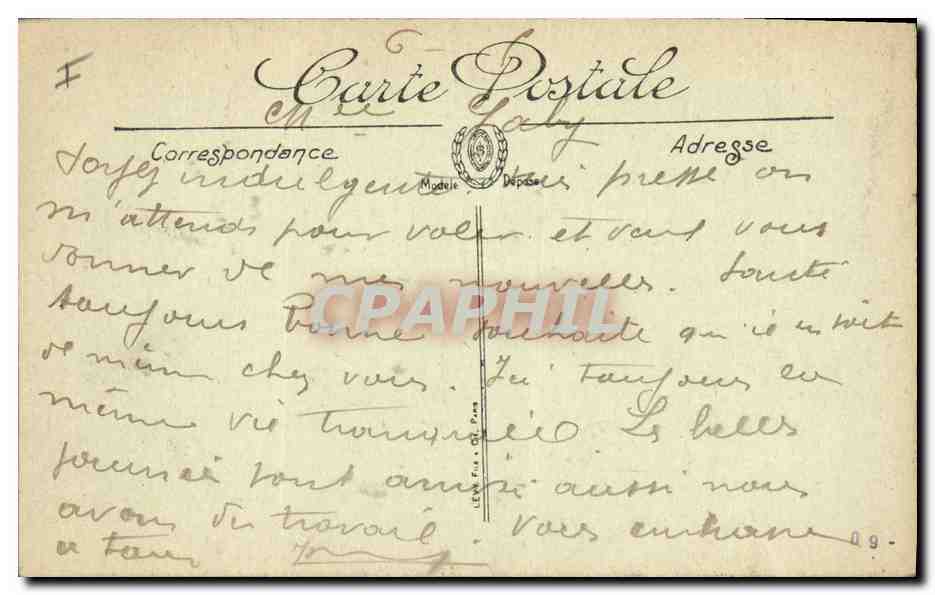 I
Carte Postale
Mlle Gaby
Correspondance
Adresse
Modèle Déposé
Soyez indulgente. Suis pressé on
m'attends pour voler et veux vous
donner de mes nouvelles. Santé
toujours bonne souhaite qu'il en soit
de même chez vous. Ici toujours la
même vie tranquille Les belles
journées sont aussi nous
avons du travail. Vous embrasse
a tous
LEVY Fils & Cie, PARIS
CPAPHIL
09-